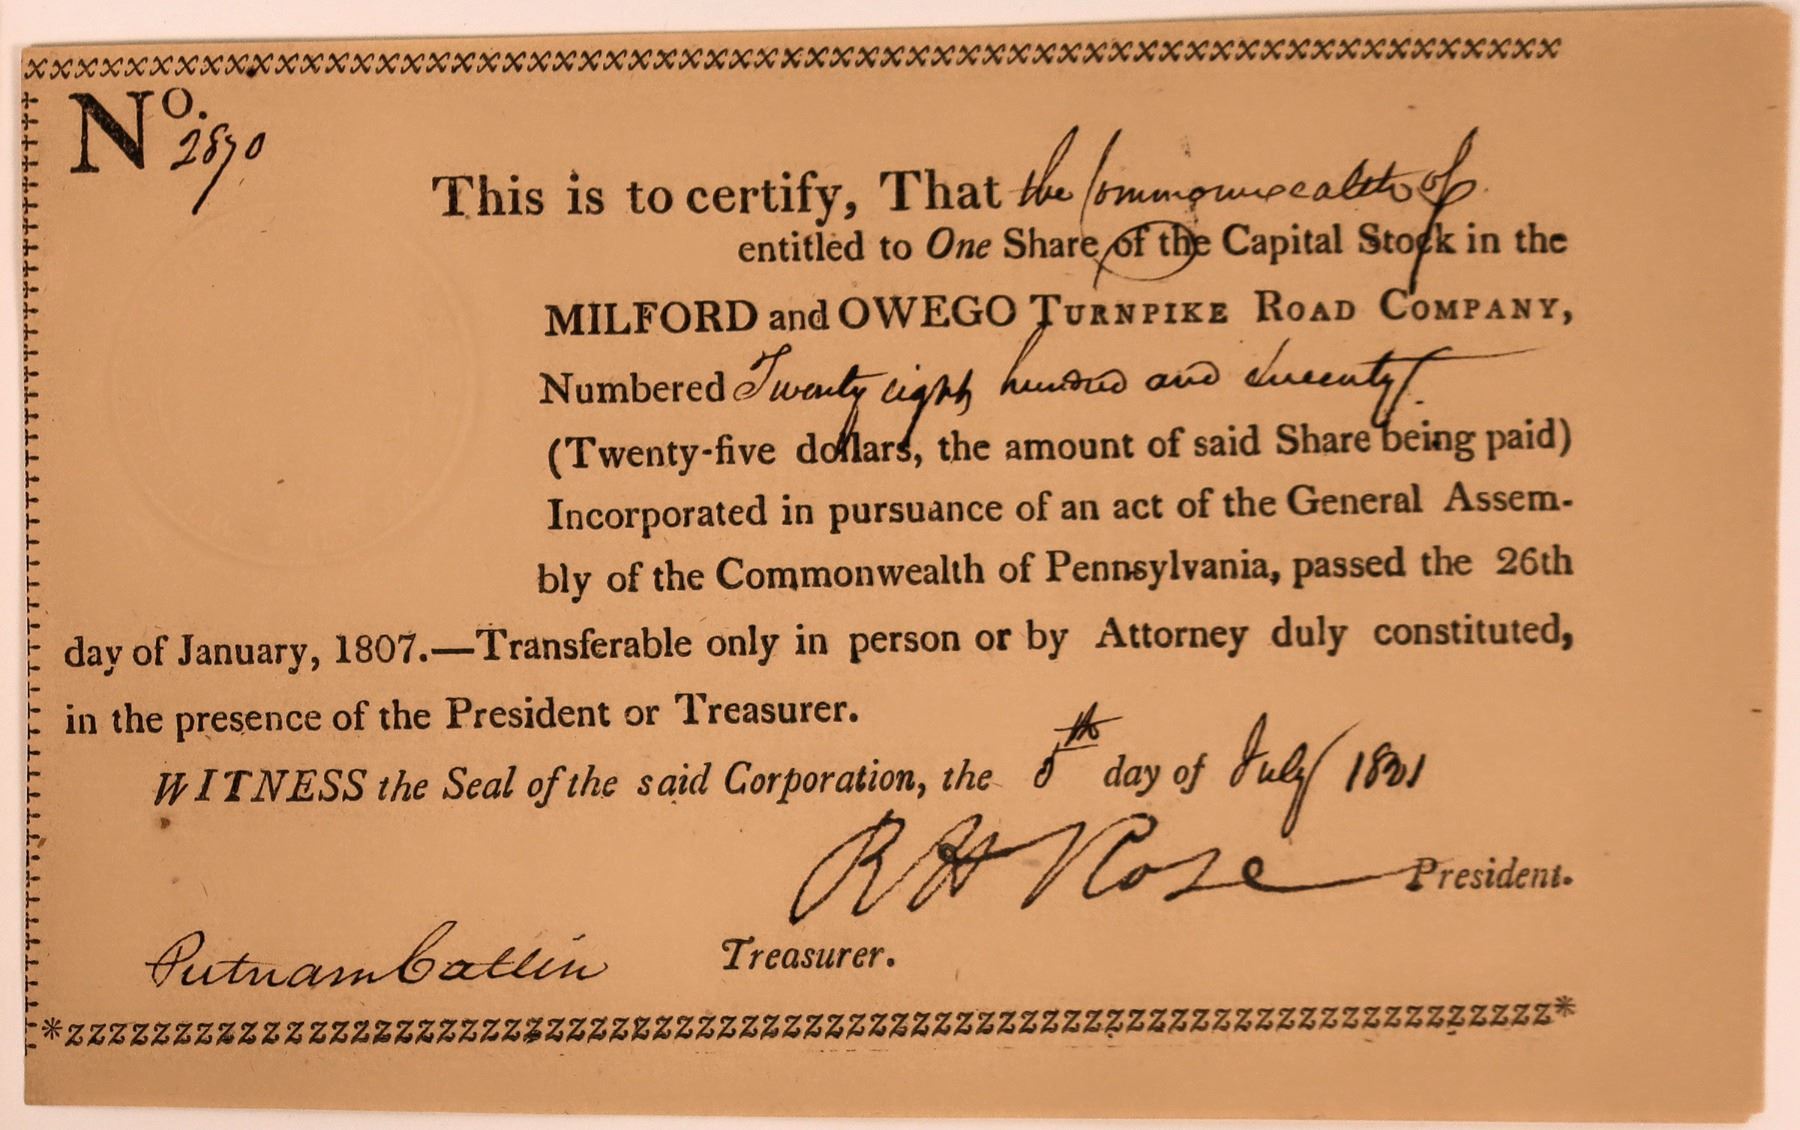 No. 2870
This is to certify, That the Commonwealth of
entitled to One Share of the Capital Stock in the
MILFORD and OWEGO TURNPIKE ROAD COMPANY,
Numbered Twenty eight hundred and seventy
(Twenty-five dollars, the amount of said Share being paid)
Incorporated in pursuance of an act of the General Assem-
bly of the Commonwealth of Pennsylvania, passed the 26th
day of January, 1807.—Transferable only in person or by Attorney duly constituted,
in the presence of the President or Treasurer.
WITNESS the Seal of the said Corporation, the 5th day of July 1821
R H Rose President.
Putnam Catlin Treasurer.